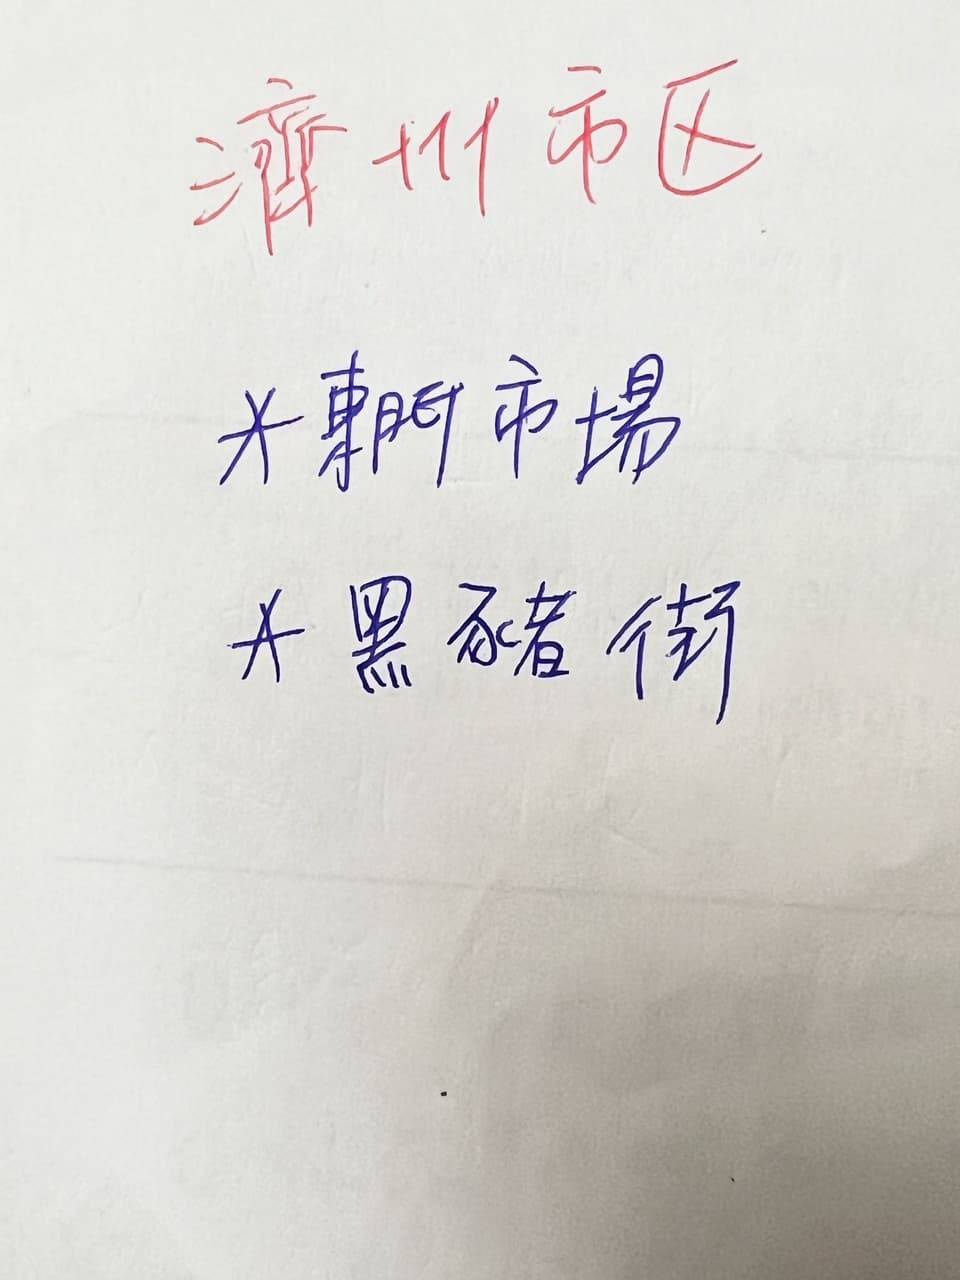 濟州市区
*東門市場
*黑豬街